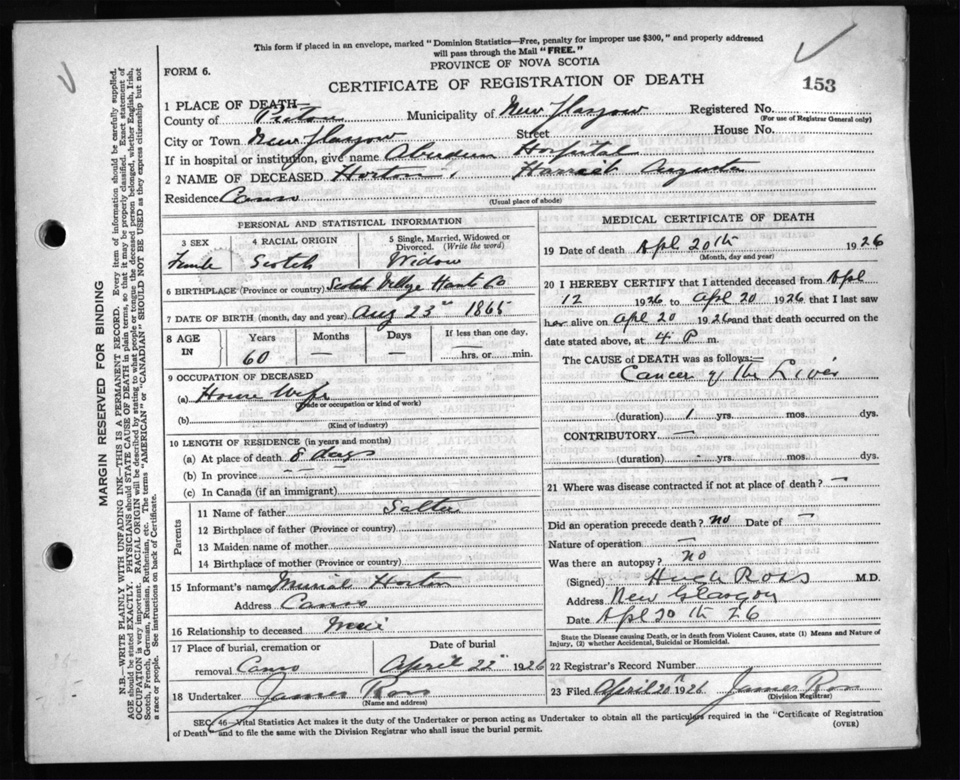 This form if placed in an envelope, marked "Dominion Statistics—Free, penalty for improper use $300," and properly addressed
will pass through the Mail "FREE."
PROVINCE OF NOVA SCOTIA
FORM 6.
CERTIFICATE OF REGISTRATION OF DEATH
153
1 PLACE OF DEATH
County of Pictou Municipality of New Glasgow Registered No.
(For use of Registrar General only)
City or Town New Glasgow Street House No.
If in hospital or institution, give name Aberdeen Hospital
2 NAME OF DECEASED Horton, Harriet Augusta
Residence Canso
(Usual place of abode)
PERSONAL AND STATISTICAL INFORMATION
3 SEX 4 RACIAL ORIGIN 5 Single, Married, Widowed or
Divorced. (Write the word)
Female Scotch Widow
6 BIRTHPLACE (Province or country) Scotch Village Hants Co
7 DATE OF BIRTH (month, day and year) Aug 23rd 1865
8 AGE IN Years Months Days If less than one day,
60 — — hrs. or min.
9 OCCUPATION OF DECEASED
(a) House Wife
(Trade or occupation or kind of work)
(b)
(Kind of industry)
10 LENGTH OF RESIDENCE (in years and months)
(a) At place of death 8 days
(b) In province — — —
(c) In Canada (if an immigrant)
Parents
11 Name of father Salter
12 Birthplace of father (Province or country)
13 Maiden name of mother
14 Birthplace of mother (Province or country)
15 Informant's name Muriel Horton
Address Canso
16 Relationship to deceased
17 Place of burial, cremation or Date of burial
removal Canso April 22" 1926
18 Undertaker James Ross
(Name and address)
MEDICAL CERTIFICATE OF DEATH
19 Date of death Apl 20th 1926
(Month, day and year)
20 I HEREBY CERTIFY that I attended deceased from Apl
12 1926 to Apl 20 1926 that I last saw
her alive on Apl 20 1926 and that death occurred on the
date stated above, at 4 P m.
The CAUSE OF DEATH was as follows:—
Cancer of the Liver
(duration) 1 yrs. mos. dys.
CONTRIBUTORY —
(duration) yrs. mos. dys.
21 Where was disease contracted if not at place of death? —
Did an operation precede death? no Date of —
Nature of operation —
Was there an autopsy? no
(Signed) Hugh Ross M.D.
Address New Glasgow
Date Apl 20th 26
State the Disease causing Death, or in death from Violent Causes, state (1) Means and Nature of
Injury, (2) whether Accidental, Suicidal or Homicidal.
22 Registrar's Record Number
23 Filed April 20" 1926 James Ross
(Division Registrar)
SEC. 46—Vital Statistics Act makes it the duty of the Undertaker or person acting as Undertaker to obtain all the particulars required in the "Certificate of Registration
of Death" and to file the same with the Division Registrar who shall issue the burial permit.
(OVER)
MARGIN RESERVED FOR BINDING
N.B.—WRITE PLAINLY WITH UNFADING INK—THIS IS A PERMANENT RECORD. Every item of information should be carefully supplied.
AGE should be stated EXACTLY. PHYSICIANS should STATE CAUSE OF DEATH in plain terms, so that it may be properly classified. Exact statement of
OCCUPATION is very important. RACIAL ORIGIN will be described by stating to what people or tongue the deceased person belonged, whether English, Irish,
Scotch, French, German, Russian, Ruthenian, etc. The terms "AMERICAN" or "CANADIAN" SHOULD NOT BE USED as they express citizenship but not
a race or people. See instructions on back of Certificate.